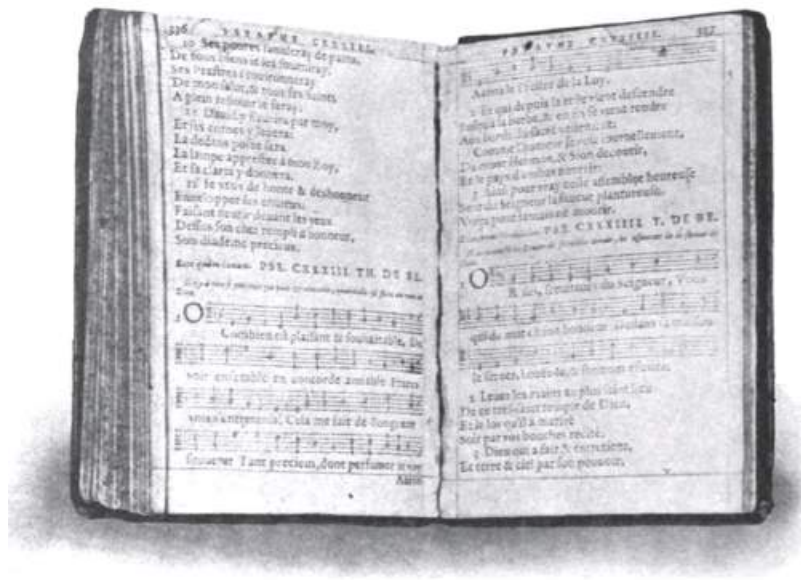 336 PSEAUME CXXXII.
10 Ses poures saouleray de pains,
De tous biens ie les fourniray,
Ses Prestres
De mon salut, & tous ses Saints
A plein resiouir ie feray.
11 Dauid y par moy,
Et ses cornes y leuera:
La dedans posée sera
La lampe apprestée à mon Roy,
Et sa clarté y donnera.
12 Ie veux de honte & deshonneur
Enuelopper ses ennemis,
Faisant deuant les yeux
Dessus son chef rempli d'honneur,
Son diademe precieux.
PSE. CXXXIII. TH. DE BE.
O
Combien est plaisant & souhaitable, De
voir ensemble en concorde amiable Freres
vnis s'entretenir! Cela me fait de l'onguent
souuenir Tant precieux, dont parfumer ie voy
Aaron
PSEAUME CXXXIIII. 337
Aaron le Prestre de la Loy.
2 Et qui depuis la teste vient descendre
Iusqu'à la barbe, & en fin se vient rendre
Aux bords du sacré vestement:
Comme l'humeur se void iournellement,
Du mont Hermon, & Sion decourir,
Et le pays d'embas nourrir:
3 Ainsi pour vray ceste assemblée heureuse
Sent du Seigneur la faueur plantureuse,
Voire pour iamais ne mourir.
PSE. CXXXIIII. T. DE BE.
O
Sus, seruiteurs du Seigneur, Vous
qui de nuit en son honneur Dedans sa maison
le seruez, Louez-le, & son nom
2 Leuez les mains au plus saint lieu
De ce tressaint temple de Dieu,
Et le los qu'il a merité
Soit par vos bouches recité.
3 Dieu qui a fait & entretient,
Et terre & ciel par son pouuoir,